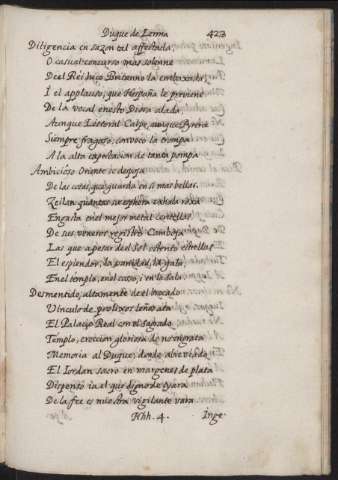 Duque de Lerma 423
Diligencia en sazon tal affectada,
O casual concurso mas solenne
Del Rei hizo Britanno la embaxada,
I el applauso, que Hespaña le previene
De la vocal en esto Diosa alada,
Aunque Litoral Calpe, aunque Pyrene
Siempre fragoso, convoco la trompa
A la alta expectacion de tanta pompa
Ambicioso Oriente se despoja
De las cosas, que guarda en si mas bellas,
Zeilan quantas su esphera exhala roxa
Engasta en el mejor metal centellas,
De sus veneros registrò Camboja
Las que a pesar de el Sol ostentò estrellas
El esplendor, la vanidad, la gala
En el templo, en el cosso, i en la sala
Desmentido altamente de el brocado
Vinculo de prolixos leños ata
El Palacio Real con el Sagrado
Templo, ereccion gloriosa de no ingrata
Memoria al Duque, donde abreviado
El Iordan sacro en margenes de plata
Dispensò ia el que digno de Tyara
De la fee es nuestra vigilante vara
Hhh. 4. Inge